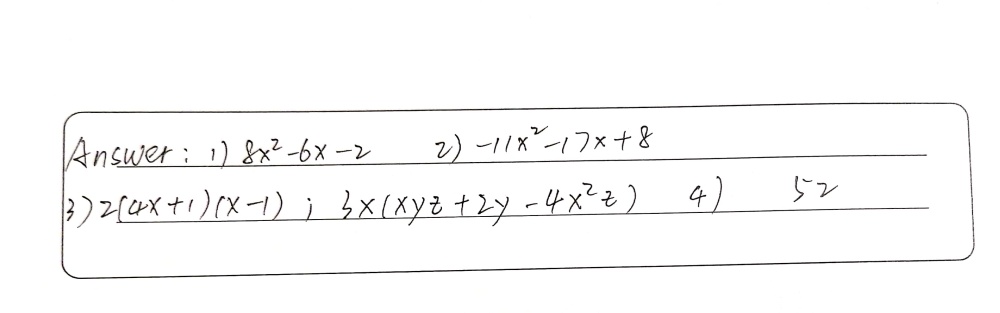 Answer: 1) 8x²-6x-2 2) -11x²-17x+8
3) 2(4x+1)(x-1) ; 3x(xyz+2y-4x²z) 4) 52